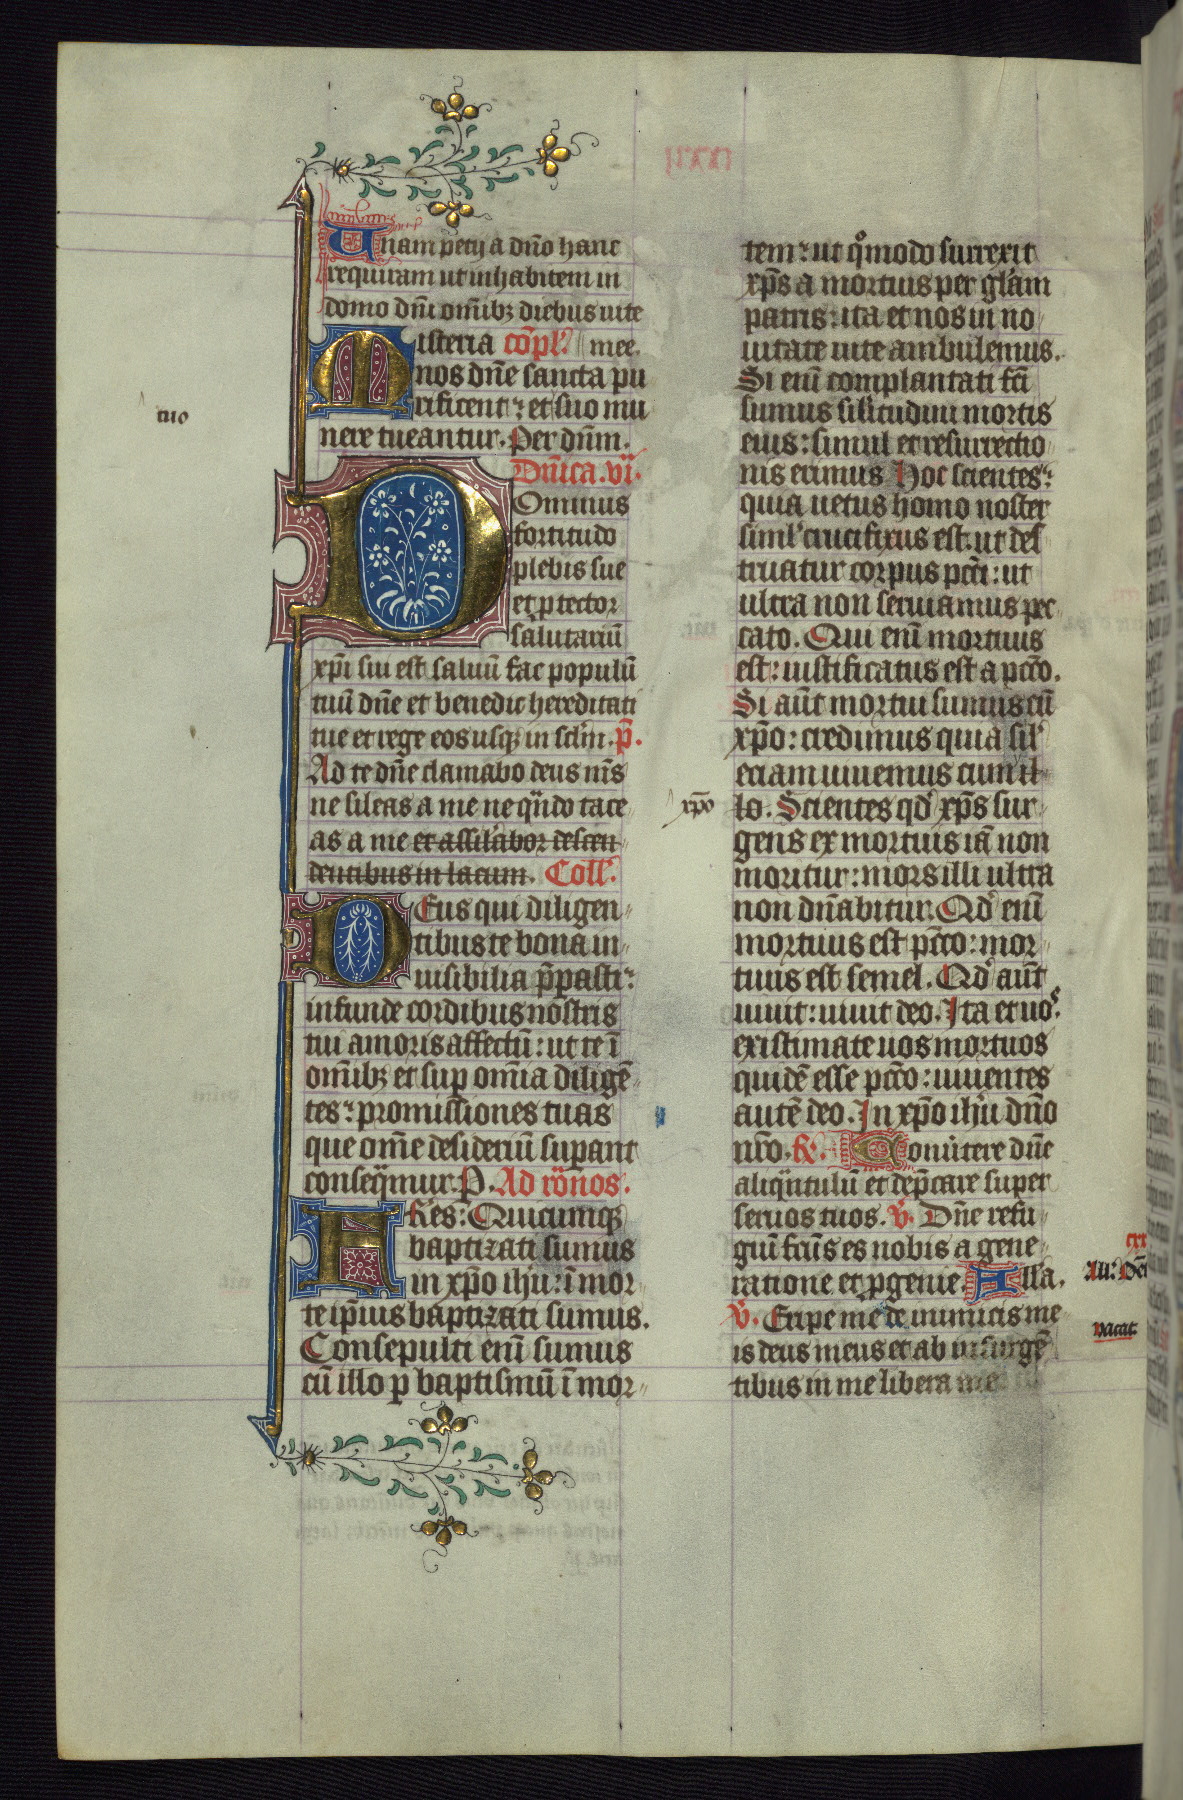 Unam petij a dño hanc
requiram ut inhabitem in
domo dñi omībꝫ diebus uite
isteria cōpl'. mee.
nos dñe sancta pu
rificent: et suo mu
nere tueantur. Per dñm.
Dñica. vi.
Dominus
fortitudo
plebis sue
et ꝓtector
salutariū
xp̄i sui est saluū fac populū
tuū dñe et benedic hereditati
tue et rege eos usqꝫ in sclm̄. p̄.
Ad te dñe clamabo deus m̄s
ne sileas a me ne qn̄do tace
as a me et assil'abor descen
dentibus in lacum. Coll'.
DEus qui diligen
tibus te bona in
uisibilia p̄pasti:
infunde cordibus nostris
tui amoris affectū: ut te ī
omībꝫ et suꝑ om̄ia diligē
tes: promissiones tuas
que om̄e desideriū suꝑant
conseq̄mur. P. Ad rōnos.
FRēs: Quicumqꝫ
baptizati sumus
in xp̄o ihū: ī mor
te ip̄ius baptizati sumus.
Consepulti enī sumus
cū illo ꝑ baptismū ī mor
tuo
tem: ut qͦmodo surrexit
xp̄s a mortuis per gl'am
patris: ita et nos in no
uitate uite ambulemus.
Si enī complantati fc̄i
sumus sil'itudini mortis
eius: simul et resurrectio
nis erimus Hoc scientes:
quia uetus homo noster
siml' crucifixus est. ut des
truatur corpus pcc̄i: ut
ultra non seruiamus pec
cato. Qui enī mortuus
est: iustificatus est a pcc̄o.
Si aūt mortui sumus cū
xp̄o: credimus quia sil'
eciam uiuemus cum il
xp̄o
lo. Scientes qd' xp̄s sur
gens ex mortuis iā non
moritur: mors illi ultra
non dn̄abitur. Qd' enī
mortuus est pcc̄o: mor
tuus est semel. Qd' aūt
uiuit: uiuit deo. Ita et uos.
existimate uos mortuos
quidē esse pcc̄o: uiuentes
autē deo. In xp̄o ihū dño
nr̄o. R. Conūtere dñe
aliqn̄tulū et dep̄care super
seruos tuos. V. Dñe refu
giū fc̄us es nobis a gene
ratione et ꝓgenie. Alla.
V. Eripe me de inimicis me
is deus meus et ab insurgē
tibus in me libera me
vacat